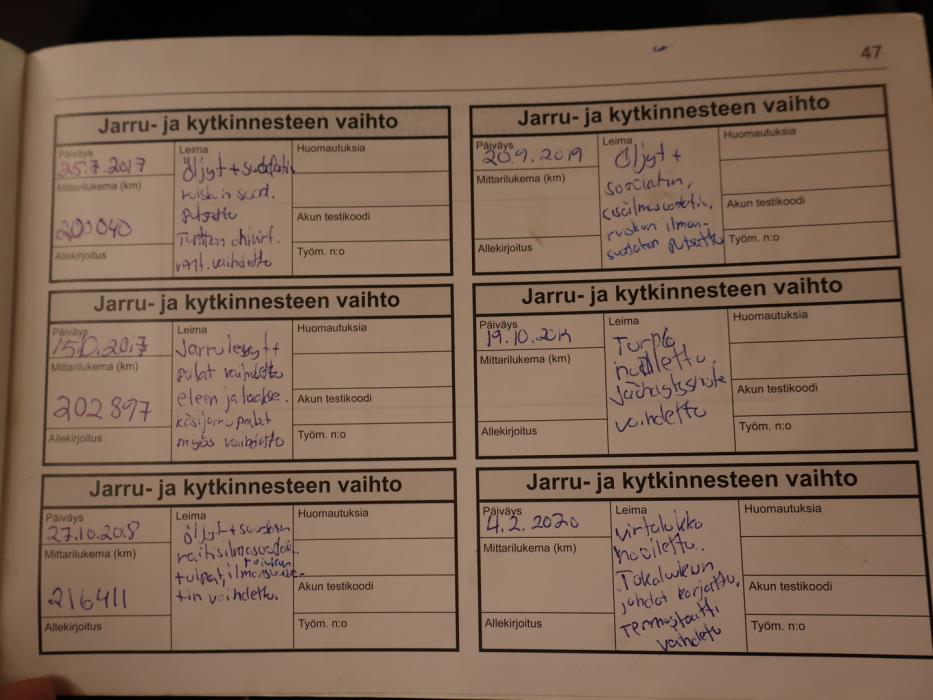 47
Jarru- ja kytkinnesteen vaihto
Päiväys
25.7.2017
Leima
Öljyt + suodatin
ruisku suod.
putsattu
vaihdettu
Mittarilukema (km)
200040
Allekirjoitus
Huomautuksia
Akun testikoodi
Työm. n:o
Jarru- ja kytkinnesteen vaihto
Päiväys
20.9.2019
Leima
Öljyt +
suodatin,
sisäilmasuodatin,
ilman-
suodatin putsattu
Mittarilukema (km)
Allekirjoitus
Huomautuksia
Akun testikoodi
Työm. n:o
Jarru- ja kytkinnesteen vaihto
Päiväys
Leima
Jarrulevyt +
palat vaihdettu
eteen ja taakse.
käsijarrupalat
myös vaihdettu
Mittarilukema (km)
202897
Allekirjoitus
Huomautuksia
Akun testikoodi
Työm. n:o
Jarru- ja kytkinnesteen vaihto
Päiväys
Leima
Turbo
huollettu.
Jäähdytysneste
vaihdettu
Mittarilukema (km)
Allekirjoitus
Huomautuksia
Akun testikoodi
Työm. n:o
Jarru- ja kytkinnesteen vaihto
Päiväys
27.10.2018
Leima
öljyt + suodatin
raitisilmasuodat.
tulpat, ilmansuoda-
tin vaihdettu.
Mittarilukema (km)
216411
Allekirjoitus
Huomautuksia
Akun testikoodi
Työm. n:o
Jarru- ja kytkinnesteen vaihto
Päiväys
4.2.2020
Leima
virtalukko
huollettu.
Takaluukun
johdot korjattu.
Termostaatti
vaihdettu
Mittarilukema (km)
Allekirjoitus
Huomautuksia
Akun testikoodi
Työm. n:o